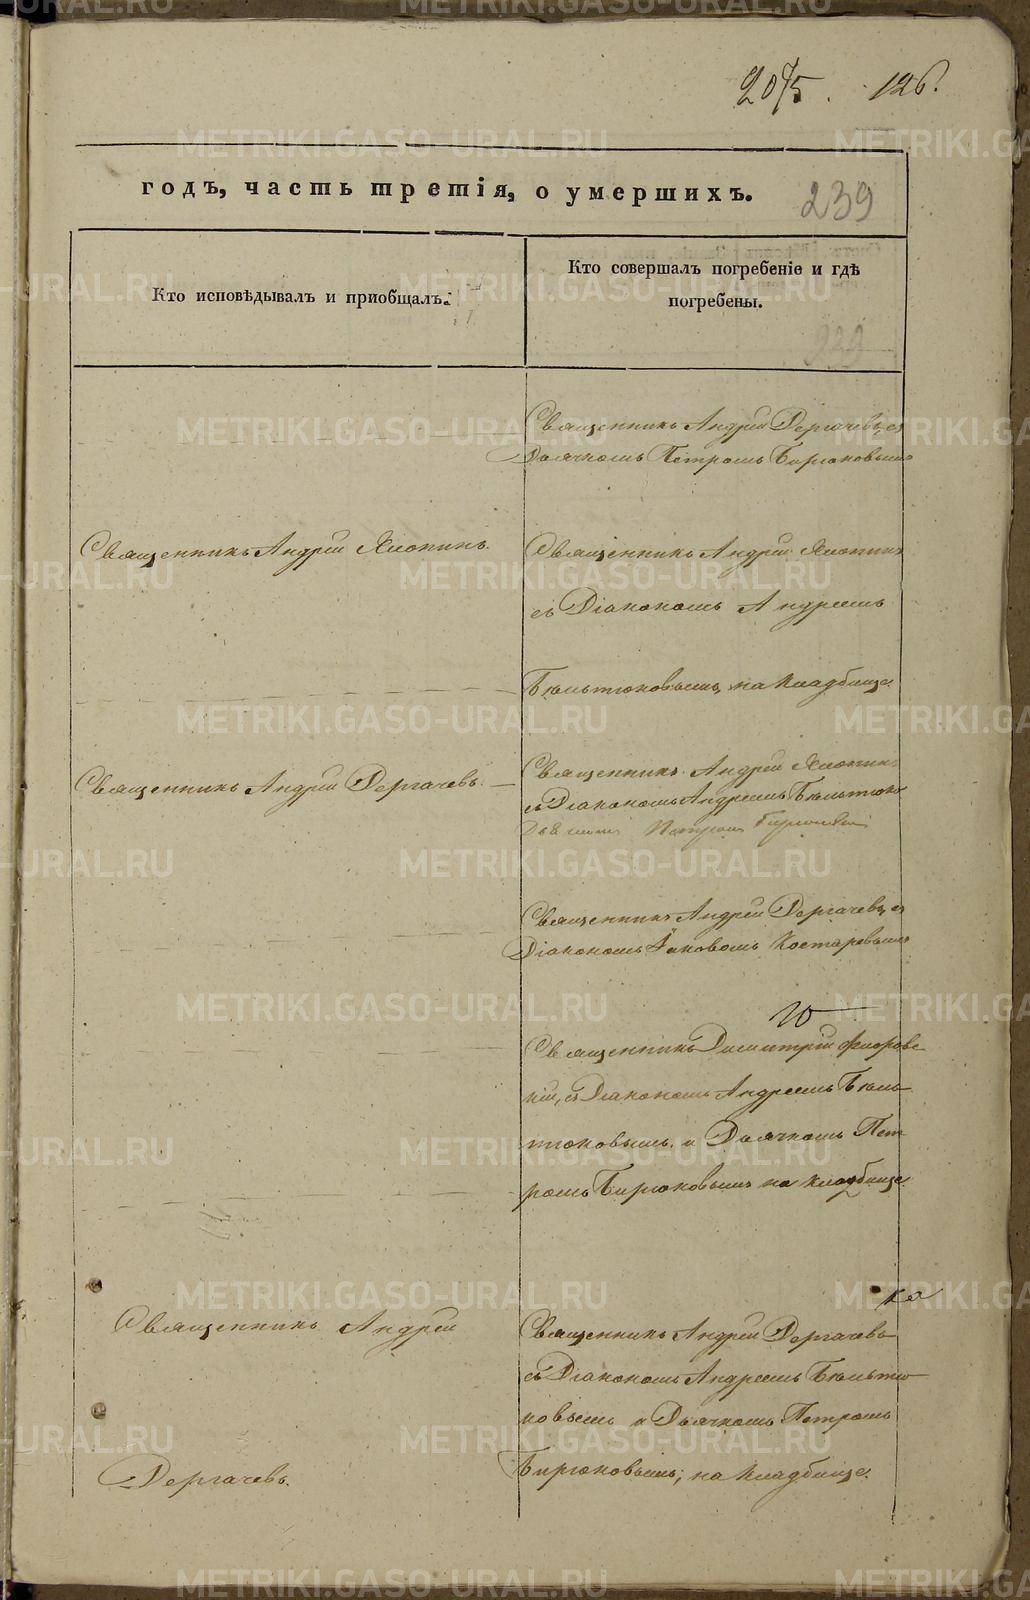 2075. 126.
годъ, часть третія, о умершихъ.
239
Кто исповѣдывалъ и приобщалъ.
Кто совершалъ погребеніе и гдѣ
погребены.
239
Священникъ Андрей Дергачевъ, съ
Дьячкомъ Петромъ Бирюковымъ
Священникъ Андрей Яжопинъ.
Священникъ Андрей
съ Діакономъ Андреемъ
на кладбище.
Священникъ Андрей Дергачевъ.
Священникъ Андрей
съ Діакономъ Андреемъ
Петромъ Бирюковымъ
Священникъ Андрей Дергачевъ, съ
Діакономъ Іаковомъ Костаревымъ
Священникъ Димитрій Флоровс
кій, съ Діакономъ Андреемъ
и Дьячкомъ Пет
ромъ Бирюковымъ на кладбище
Священникъ Андрей
Дергачевъ.
Священникъ Андрей Дергачевъ
съ Діакономъ Андреемъ
ковымъ и Дьячкомъ Петромъ
Бирюковымъ, на кладбище.
METRIKI.GASO-URAL.RU